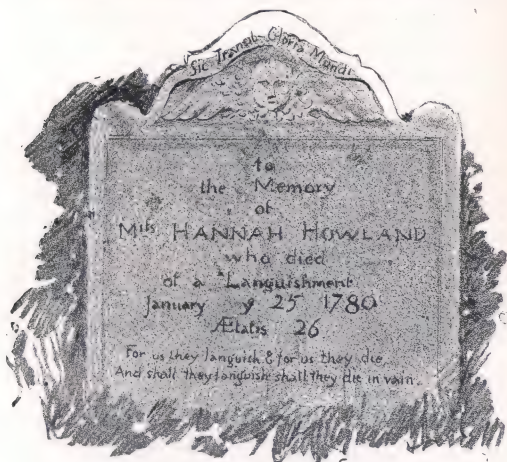 Sic Transit Gloria Mundi
to
the Memory
of
Miſs HANNAH HOWLAND
who died
of a Languishment
January y 25 1780
Ætatis 26
For us they languish & for us they die
And shall they languish shall they die in vain.